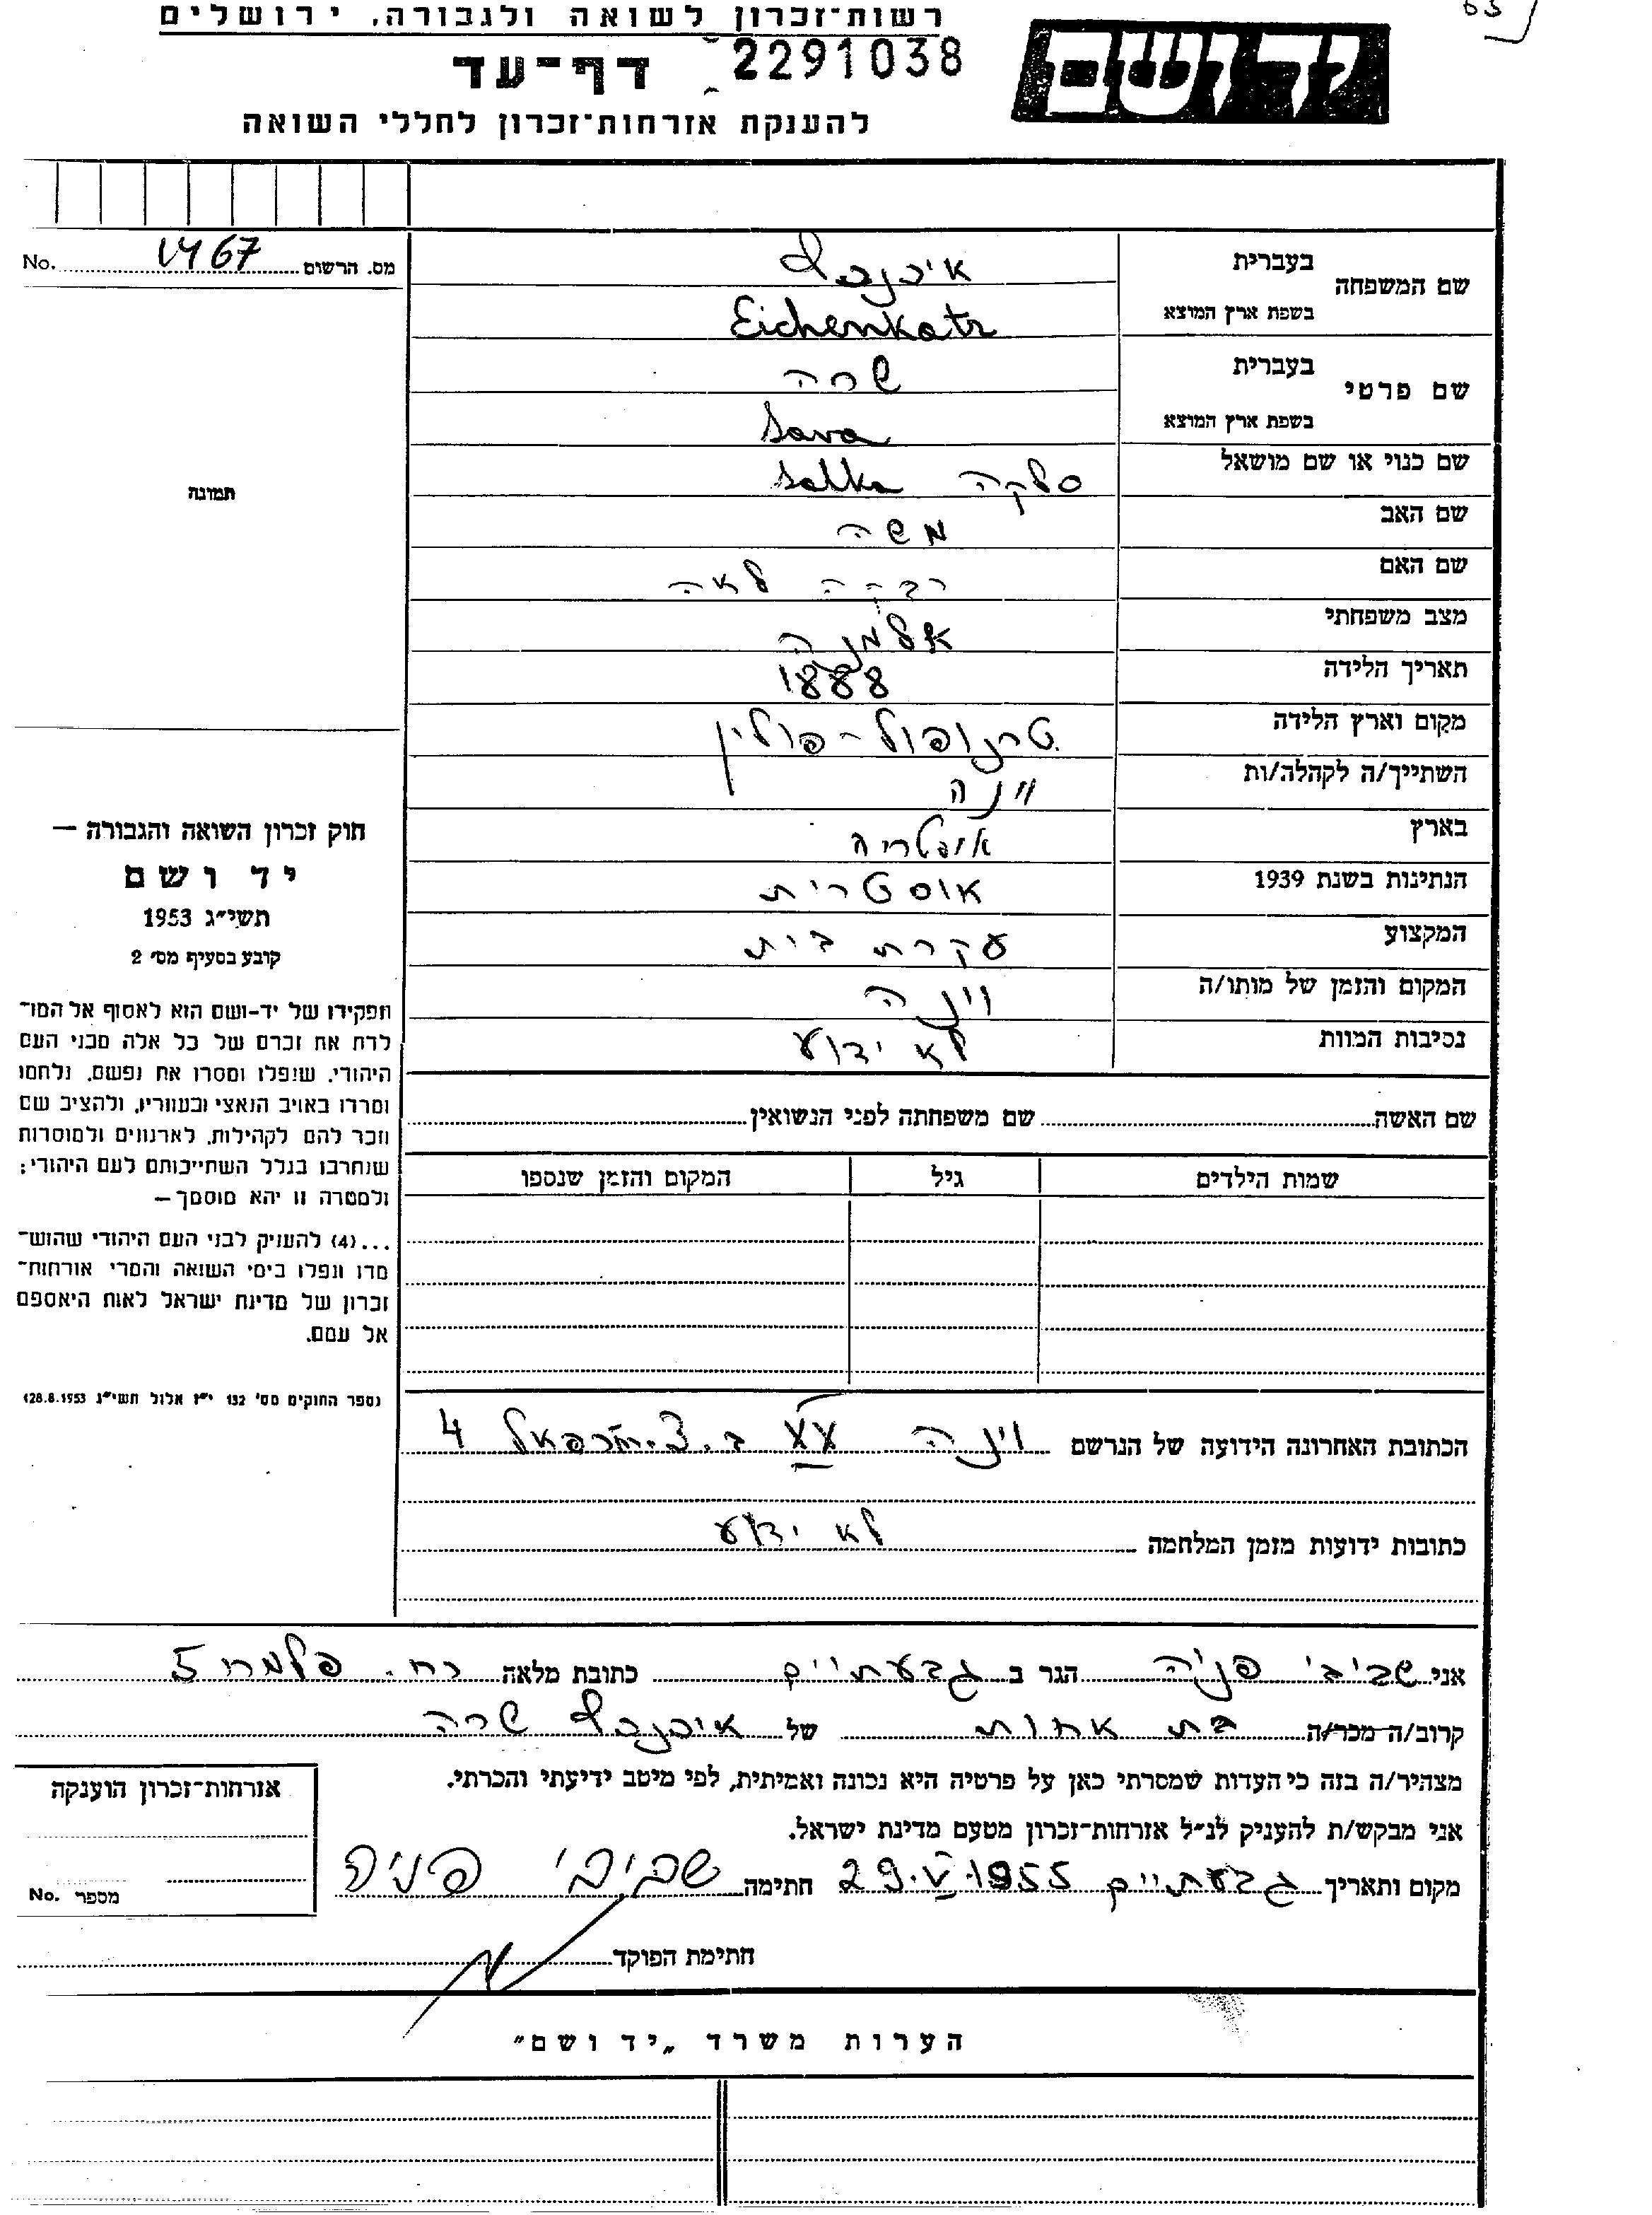 רשות־זכרון לשואה ולגבורה, ירושלים
יד ושם
דף־עד 2291038
להענקת אזרחות־זכרון לחללי השואה
מס. הרשום 467 No.
שם המשפחה בעברית
בשפת ארץ המוצא Eichenkatz
שם פרטי בעברית שרה
בשפת ארץ המוצא Sara
שם כנוי או שם מושאל סלקה Salka
שם האב משה
שם האם רבקה לאה
מצב משפחתי אלמנה
תאריך הלידה 1888
מקום וארץ הלידה טרנופול - פולין
השתייך/ה לקהלה/ות וינה
בארץ אוסטריה
הנתינות בשנת 1939 אוסטרית
המקצוע עקרת בית
המקום והזמן של מותו/ה וינה
נסיבות המוות לא ידוע
תמונה
חוק זכרון השואה והגבורה —
יד ושם
תשי״ג 1953
קובע בסעיף מס׳ 2
תפקידו של יד-ושם הוא לאסוף אל המו־
לדת את זכרם של כל אלה מבני העם
היהודי, שנפלו ומסרו את נפשם, נלחמו
ומרדו באויב הנאצי ובעוזריו, ולהציב שם
וזכר להם לקהילות, לארגונים ולמוסדות
שנחרבו בגלל השתייכותם לעם היהודי;
ולמטרה זו יהא מוסמך —
...(4) להעניק לבני העם היהודי שהוש־
מדו ונפלו בימי השואה והמרי אזרחות־
זכרון של מדינת ישראל לאות היאספם
אל עמם.
(ספר החוקים מס׳ 132 י״ז אלול תשי״ג 28.8.1953)
שם האשה שם משפחתה לפני הנשואין
שמות הילדים גיל המקום והזמן שנספו
הכתובת האחרונה הידועה של הנרשם וינה 4
כתובות ידועות מזמן המלחמה לא ידוע
אני שביבי פניה הגר ב גבעתיים כתובת מלאה רח. פלמח 5
קרוב/ה מכר/ה בת אחות של שרה
מצהיר/ה בזה כי העדות שמסרתי כאן על פרטיה היא נכונה ואמיתית, לפי מיטב ידיעתי והכרתי.
אני מבקש/ת להעניק לנ״ל אזרחות־זכרון מטעם מדינת ישראל.
מקום ותאריך גבעתיים 29.V.1955 חתימה שביבי פניה
אזרחות־זכרון הוענקה
מספר No.
חתימת הפוקד
הערות משרד „יד ושם״